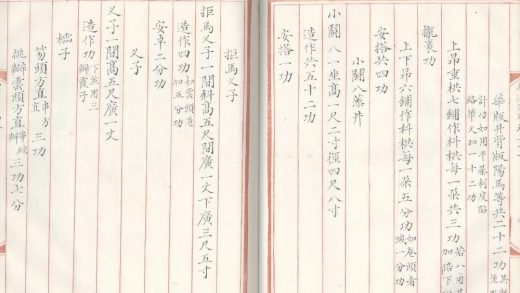 華版并背版陽馬等共二十二功其
計功如用平棊制度貼
絡華又加一十二功
上昂重栱七鋪作科栱每一朶共三功
攏裹功
上下昂六鋪作科栱每一朶五分功如卷頭者減一分功
安搭共四功
小鬭八藻井
小鬭八一坐高一尺二寸徑四尺八寸
造作共五十二功
安搭一功
拒馬叉子
拒馬叉子一間斜高五尺間廣一丈下廣三尺五寸
造作四功如雲頭造加五分功
安卓二分功
叉子
叉子一間高五尺廣一丈
造作功下並用三瓣霞子
櫺子
笏頭方直串方直三功
挑瓣雲頭方直串破瓣三功七分